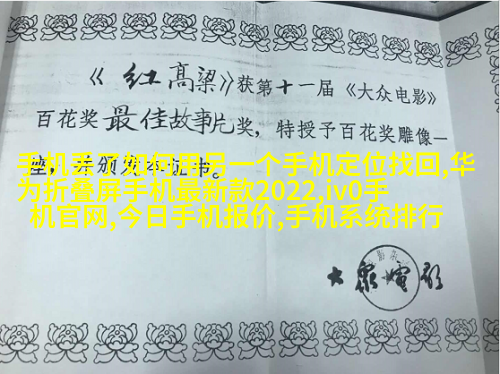 《红高粱》获第十一届《大众电影》
百花奖最佳故事片奖，特授予百花奖雕像一
座，并颁发本证书。
手机丢了如何用另一个手机定位找回,华
为折叠屏手机最新款2022,iv0手
机官网,今日手机报价,手机系统排行
大眾電影